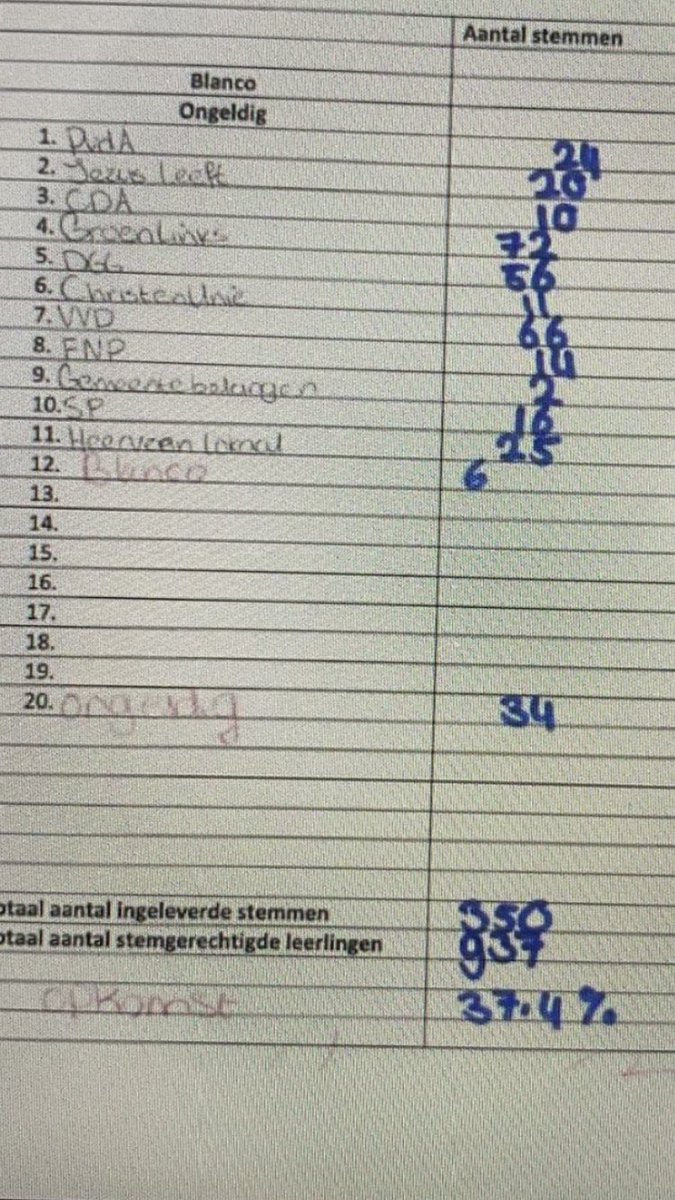 Aantal stemmen
Blanco
Ongeldig
1. PvdA 24
2. Jezus Leeft 20
3. CDA 10
4. GroenLinks 72
5. D66 56
6. ChristenUnie 11
7. VVD 66
8. FNP 14
9. Gemeentebelangen 2
10. SP 16
11. Heerveen Lokaal 25
12. Blanco 6
13.
14.
15.
16.
17.
18.
19.
20. ongeldig 34
otaal aantal ingeleverde stemmen 350
otaal aantal stemgerechtigde leerlingen 937
opkomst 37.4 %